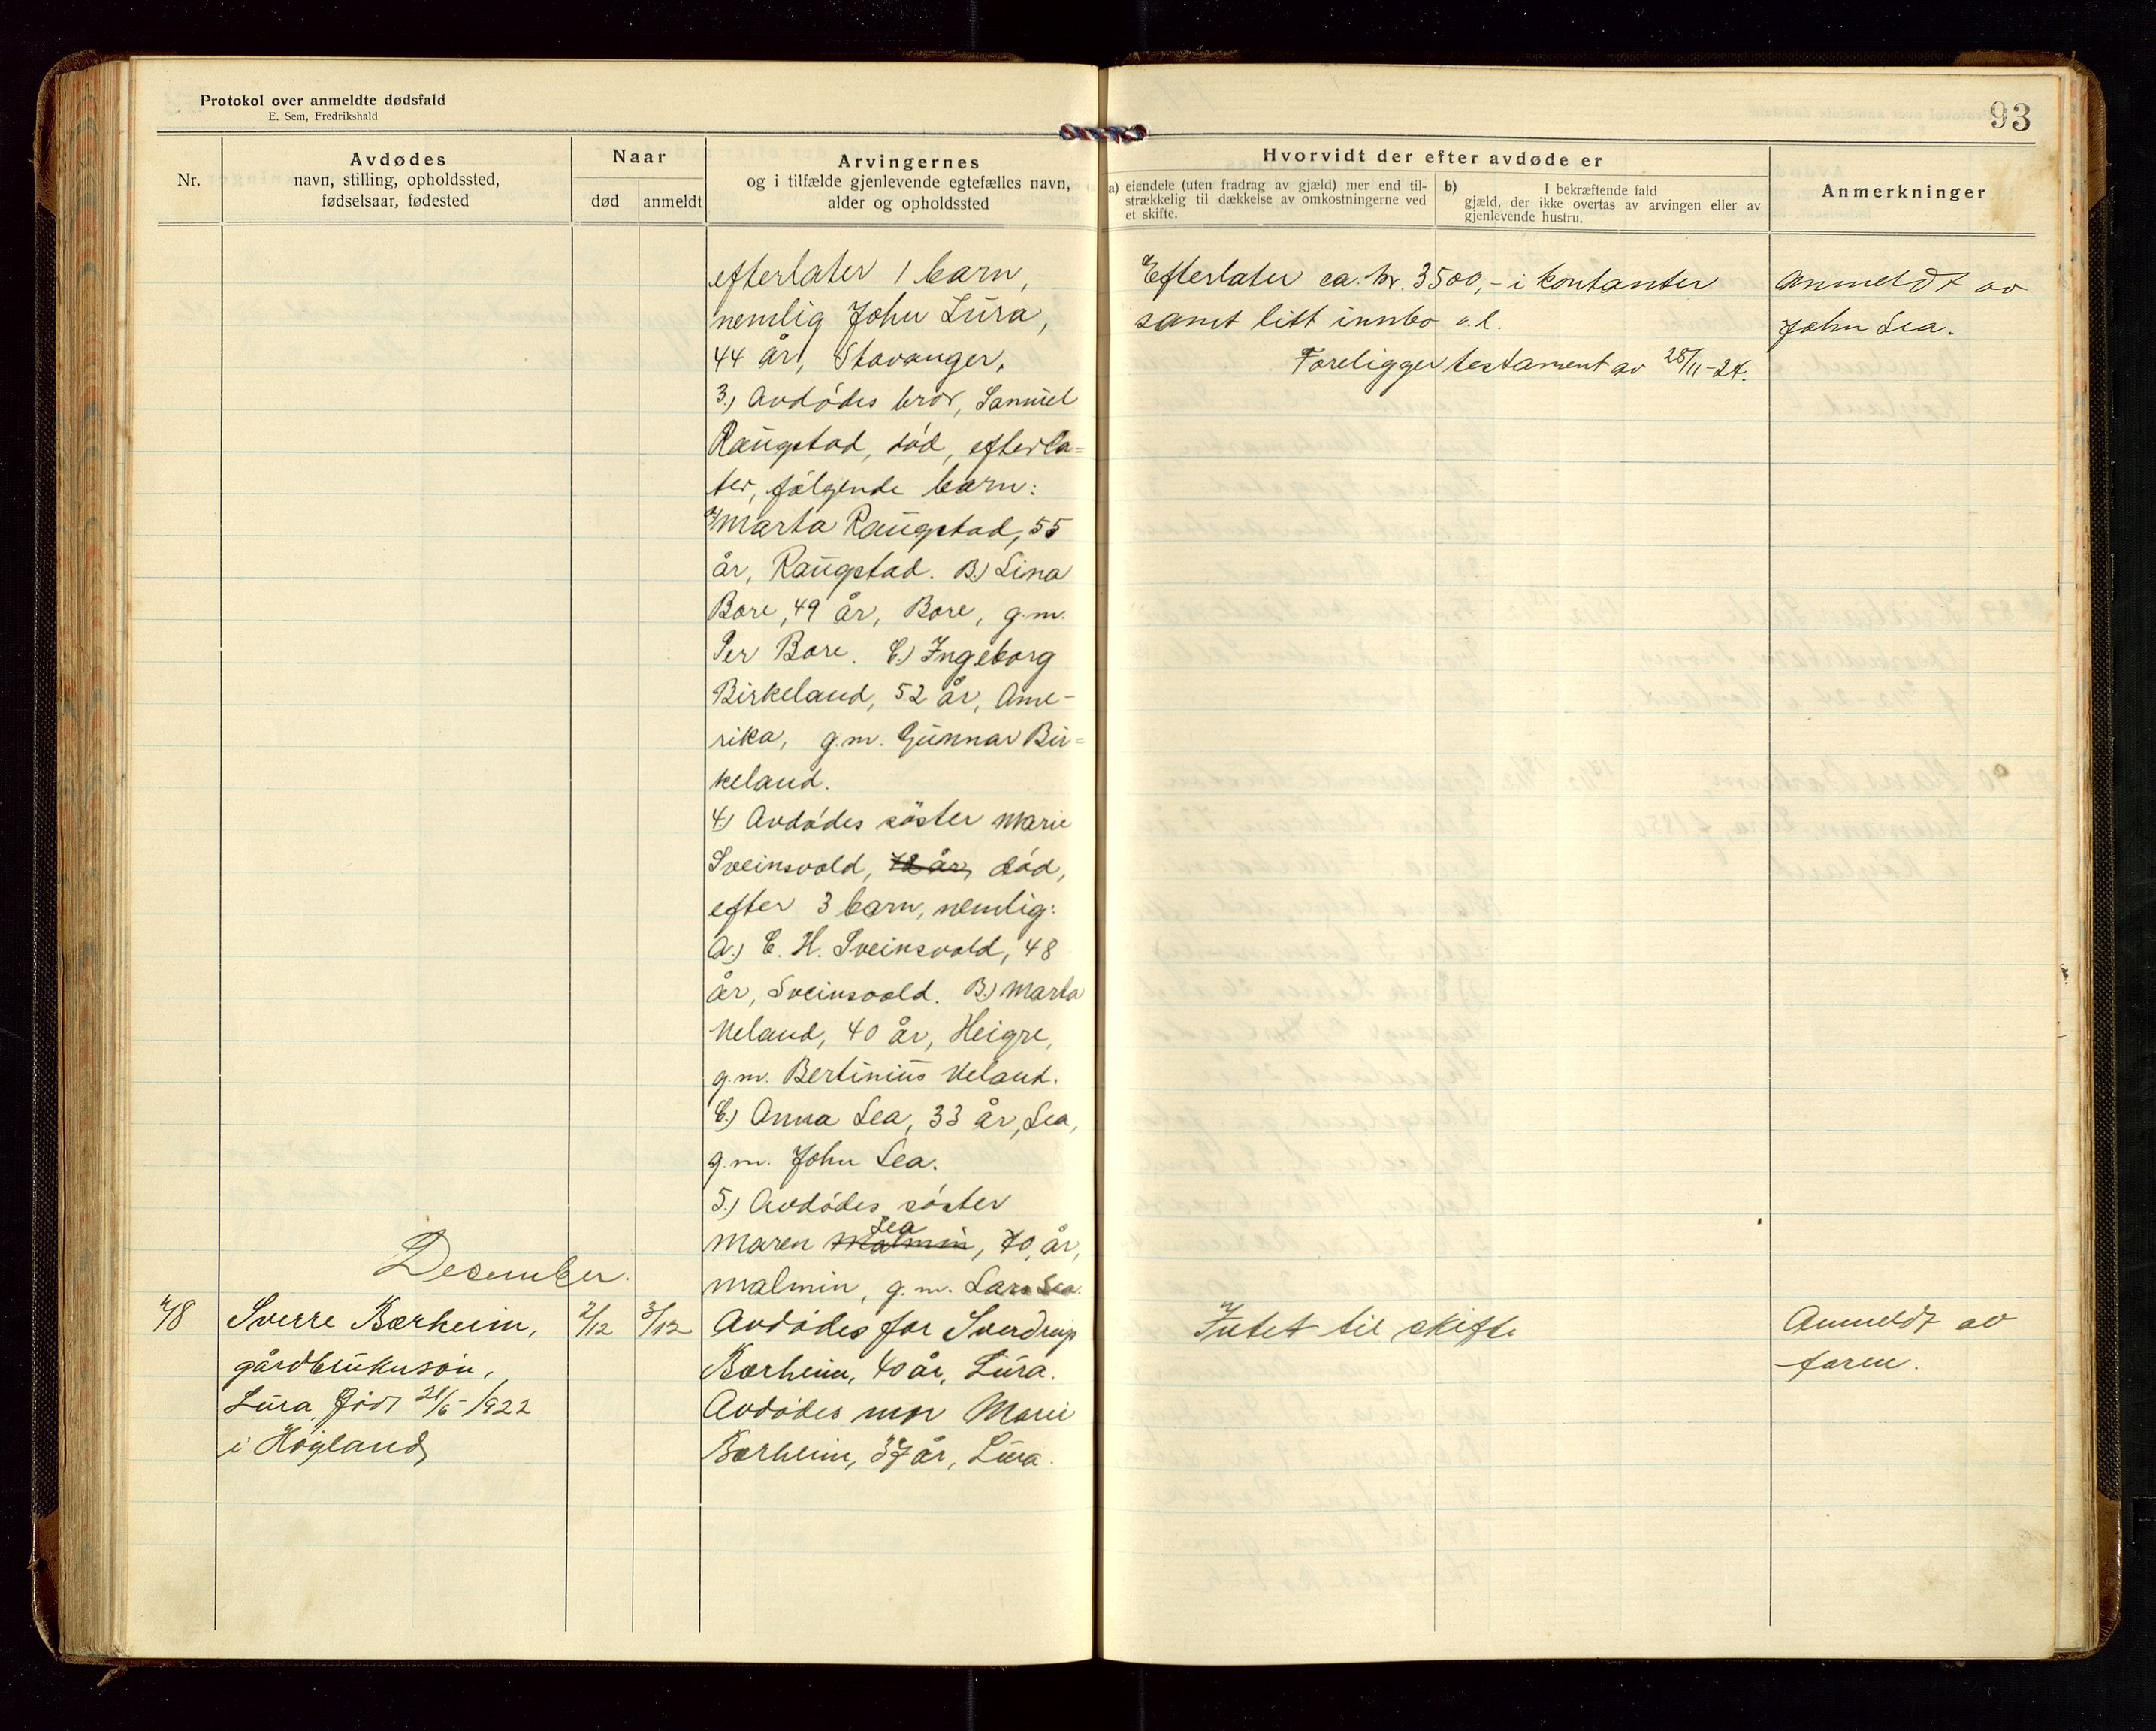 Protokol over anmeldte dødsfald
E. Sem, Fredrikshald
93
Nr.
Avdødes
navn, stilling, opholdssted,
fødselsaar, fødested
Naar
død
anmeldt
Arvingernes
og i tilfælde gjenlevende egtefælles navn,
alder og opholdssted
Hvorvidt der efter avdøde er
a) eiendele (uten fradrag av gjæld) mer end til-
strækkelig til dækkelse av omkostningerne ved
et skifte.
b) I bekræftende fald
gjæld, der ikke overtas av arvingen eller av
gjenlevende hustru.
Anmerkninger
efterlater 1 barn,
nemlig John Lura,
44 år, Stavanger.
3.) Avdødes bror, Samuel
Raugstad, død, efterla=
ter, følgende barn:
a/ Marta Raugstad, 55
år, Raugstad. B.) Lina
Bore, 49 år, Bore, g.m.
Per Bore. C.) Ingeborg
Birkeland, 52 år, Ame-
rika, g.m. Gunnar Bir=
keland.
4.) Avdødes søster Marie
Sveinsvold, 72 år, død,
efter 3 barn, nemlig:
A.) C. H. Sveinsvold, 48
år, Sveinsvold. B.) Marta
Veland, 40 år, Heigre,
g.m. Bertinius Veland.
C.) Anna Lea, 33 år, Lea,
g.m. John Lea.
5.) Avdødes søster
Lea
Maren Malmin, 70 år,
Malmin, g.m. Lars Lea.
Efterlater ca. kr. 3500,- i kontanter
samt litt innbo o.l.
Foreligger testament av 28/11-24.
Anmeldt av
John Lea.
Desember.
Sverre Bærheim,
gårdbrukersøn,
Lura, født 21/6-1922
i Høgland
2/12
3/12
Avdødes far Sverdrup
Bærheim, 40 år, Lura.
Avdødes mor Marie
Bærheim, 37 år, Lura.
Intet til skifte
Anmeldt av
faren.